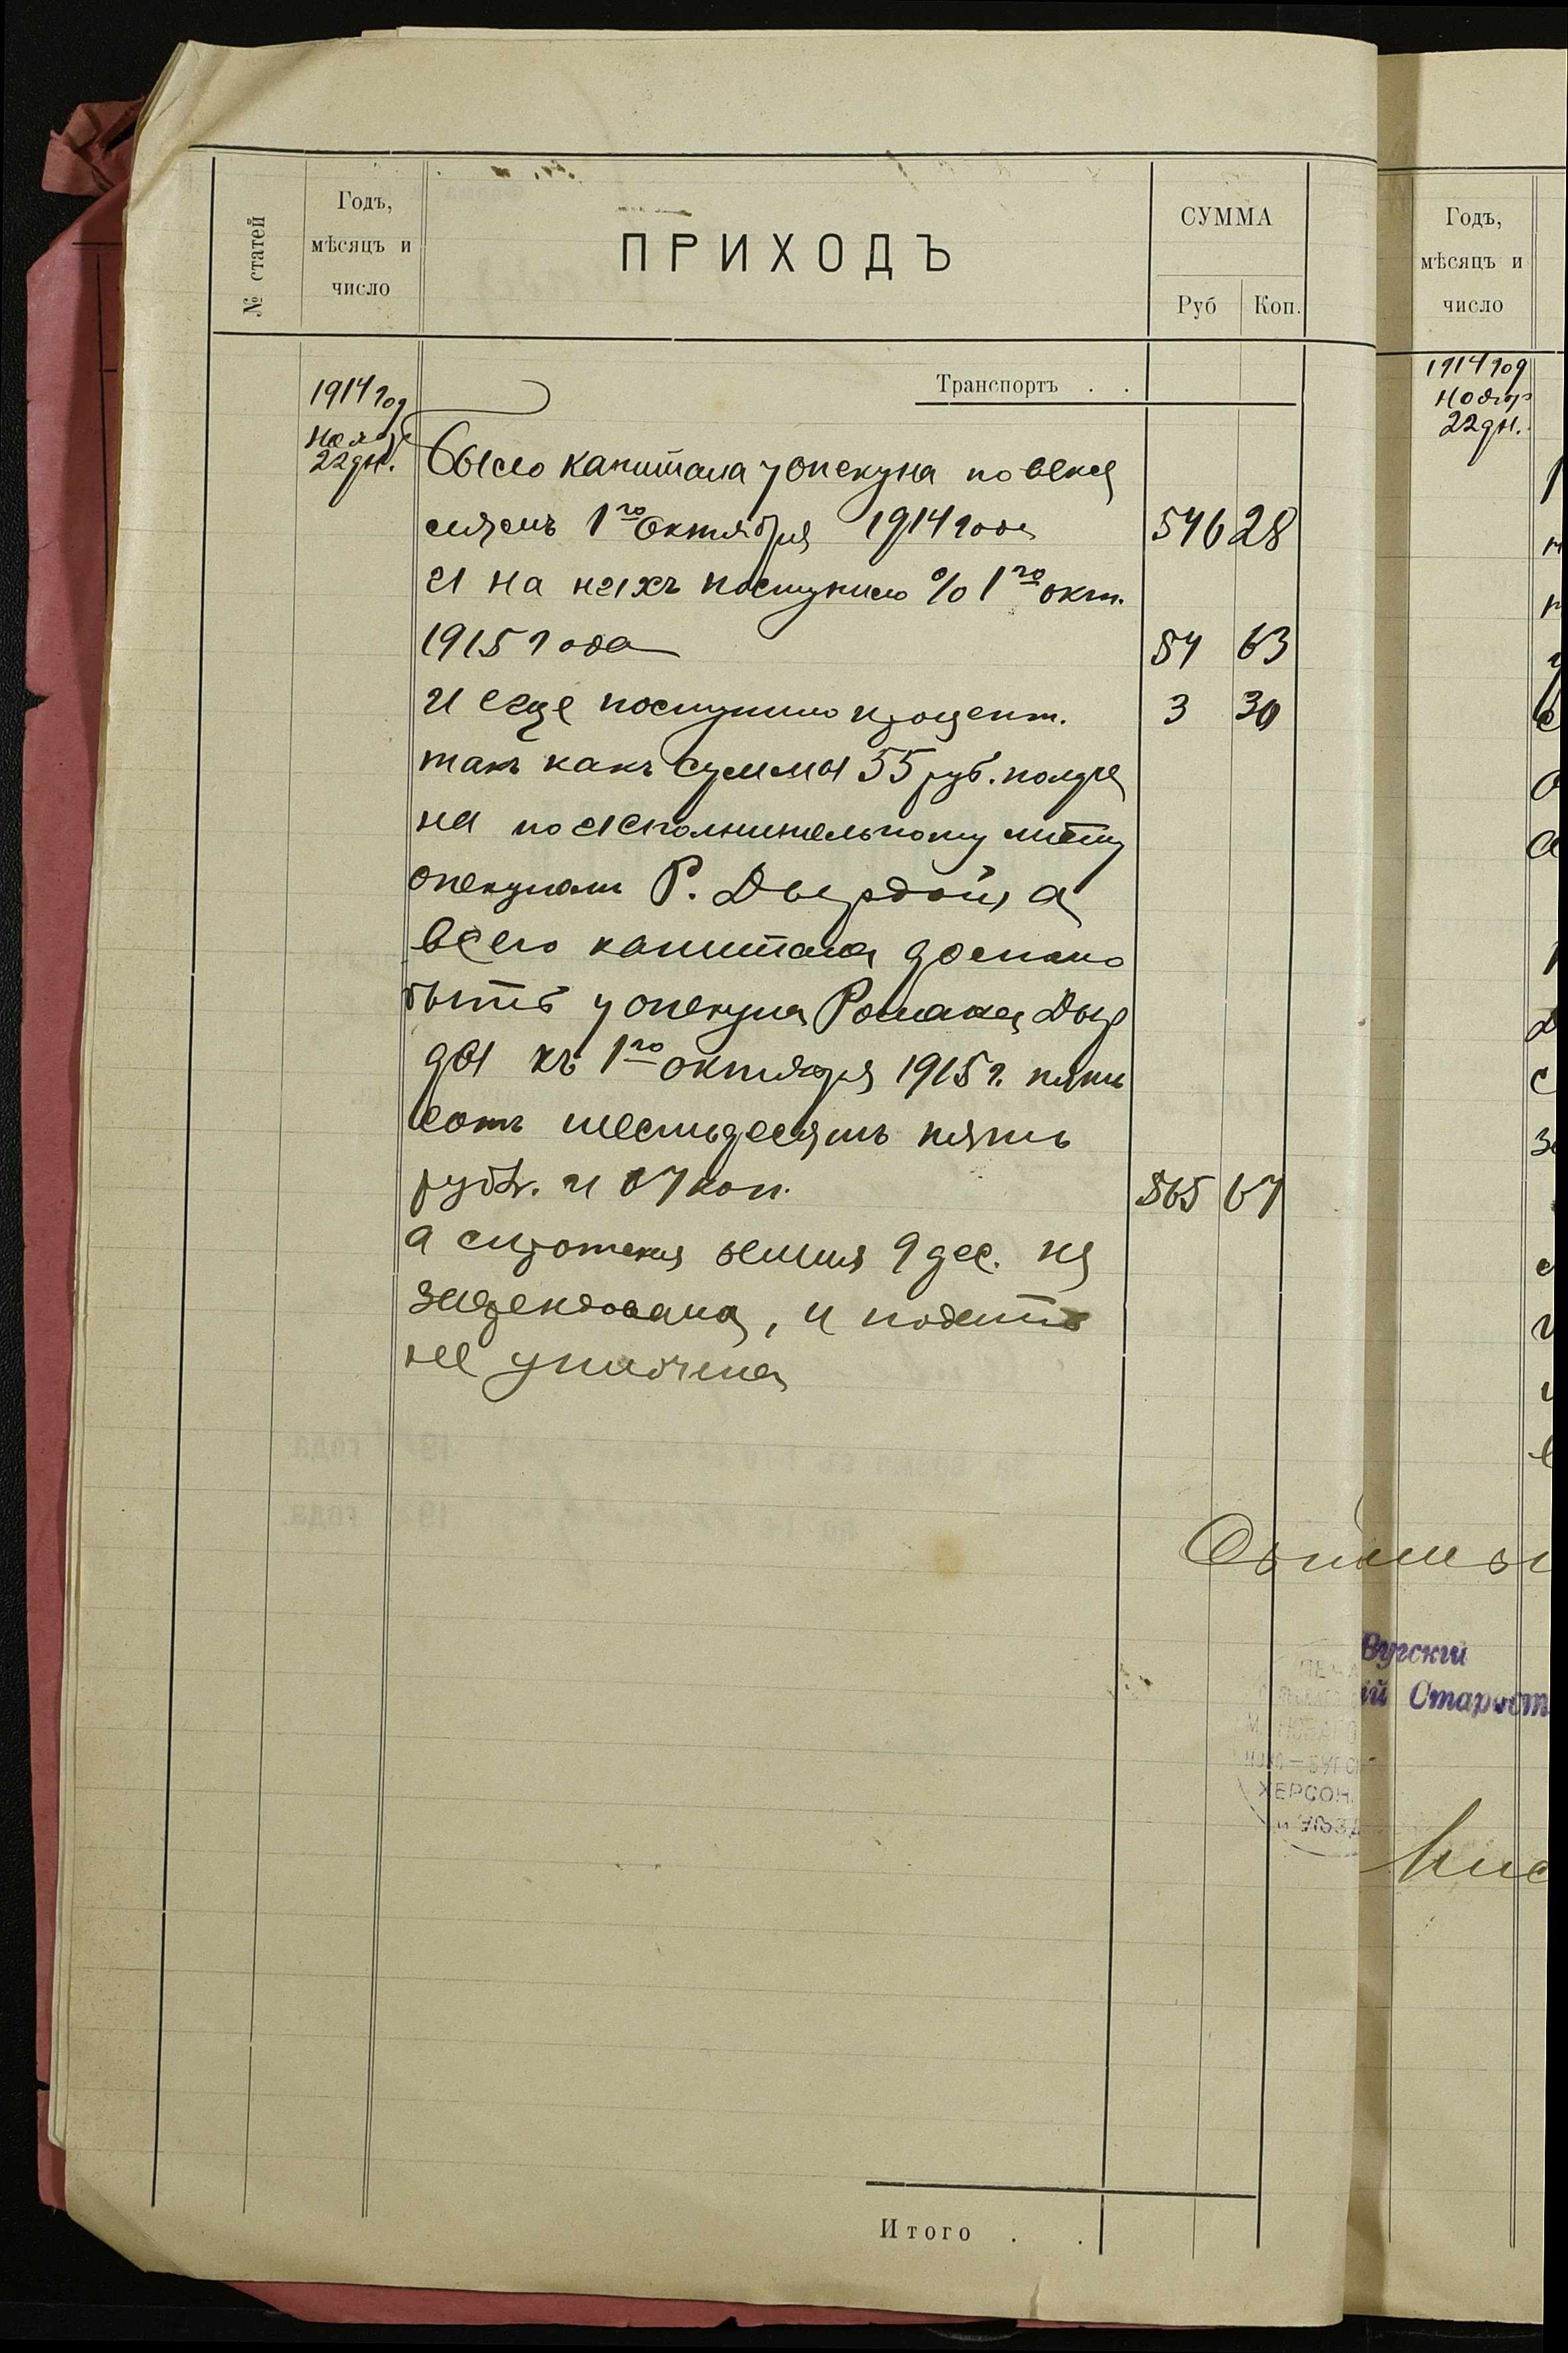 № статей
Годъ,
мѣсяцъ и
число
ПРИХОДЪ
СУММА
Руб Коп.
Транспортъ . .
1914 год
22 дн.
Было капитала у опекуна по векся
лямъ 1го Октября 1914 года 546 28
и на нихъ поступило % 1го окт.
1915 года 54 63
и еще поступило процент. 3 30
такъ какъ суммы 55 руб. получе
на по исполнительному листу
опекуном Р. Дырдой, а
всего капитала должно
быть у опекуна Романа Дыр
ды къ 1го октября 1915 г. пять
сотъ шестьдесятъ пять
рубл. и 67 коп. 565 67
а сиротская земля 9 дес. не
заарендована, и подать
не уплочена
Итого . .
Годъ,
мѣсяцъ и
число
1914 год
нояб
22 дн.
Бугскій
ій Старост
ХЕРСОН.